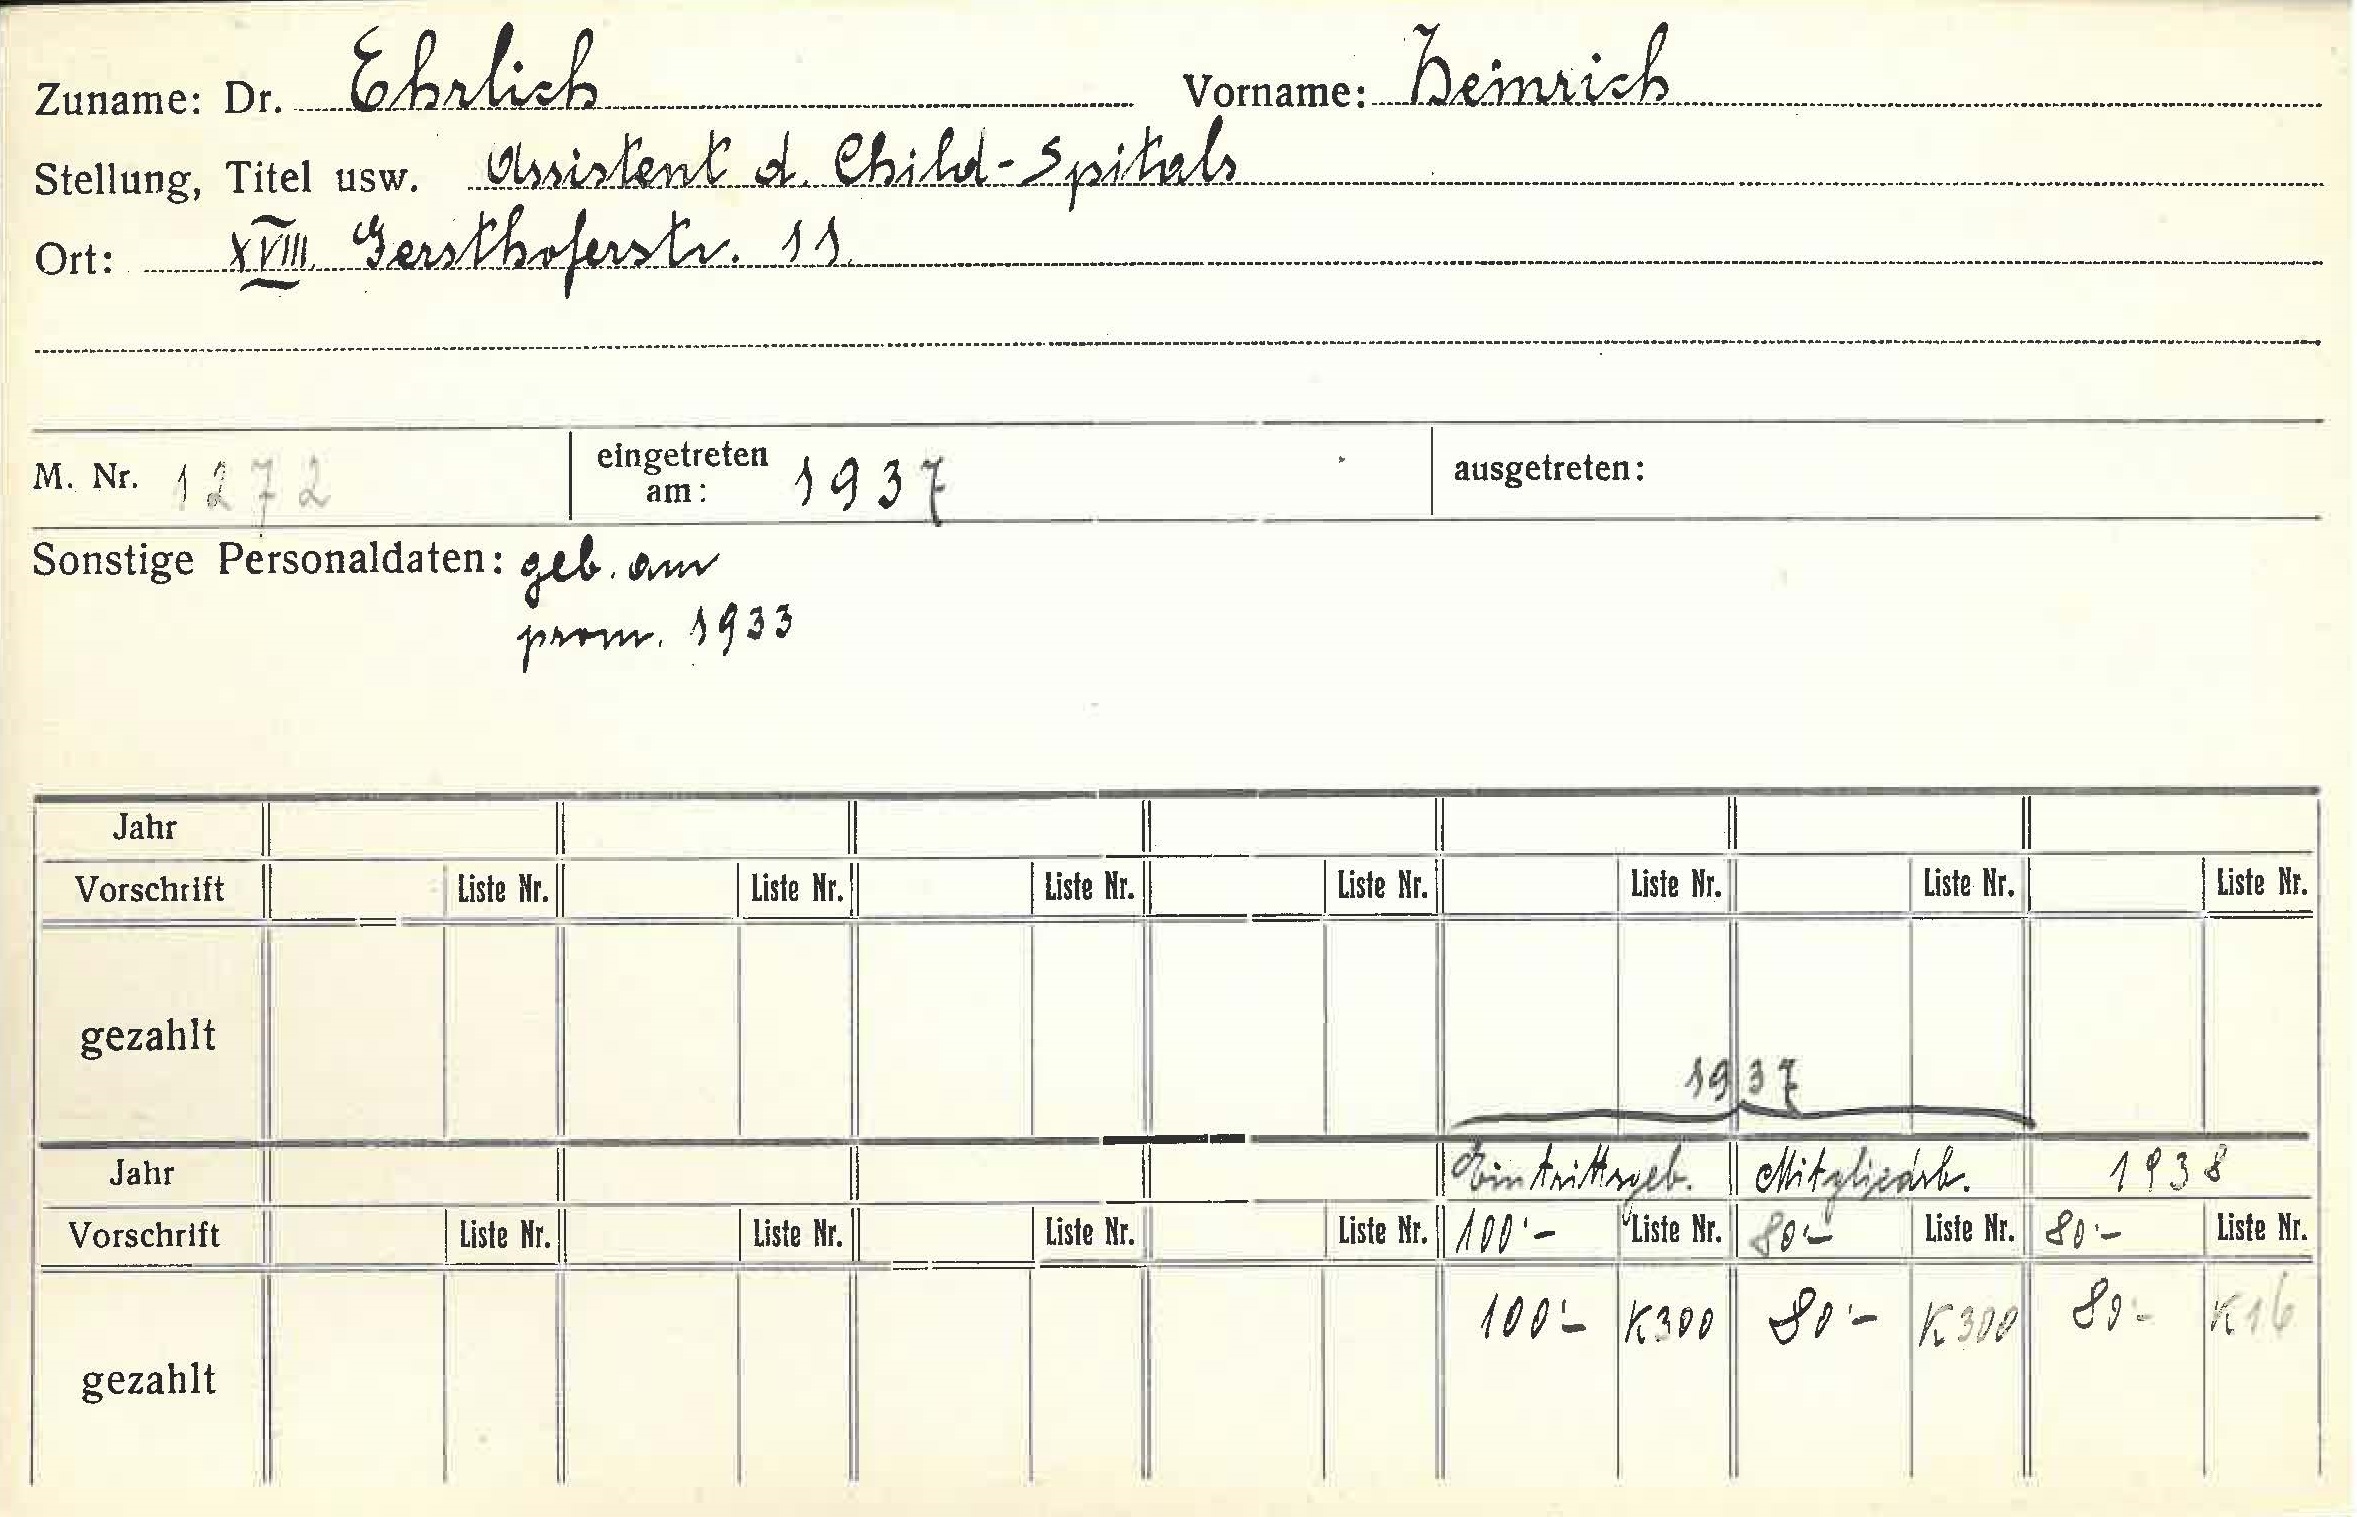 Zuname: Dr. Ehrlich Vorname: Heinrich
Stellung, Titel usw. Assistent d. Child-Spitals
Ort: XVIII. Gersthoferstr. 11.
M. Nr. 1272 eingetreten am: 1937 ausgetreten:
Sonstige Personaldaten: geb. am
prom. 1933
Jahr
Vorschrift Liste Nr. Liste Nr. Liste Nr. Liste Nr. Liste Nr. Liste Nr. Liste Nr.
gezahlt
1937
Jahr Eintrittsgeb. Mitgliedsb. 1938
Vorschrift Liste Nr. Liste Nr. Liste Nr. Liste Nr. 100'- Liste Nr. 80'- Liste Nr. 80'- Liste Nr.
gezahlt 100'- K300 80'- K300 80'- K16